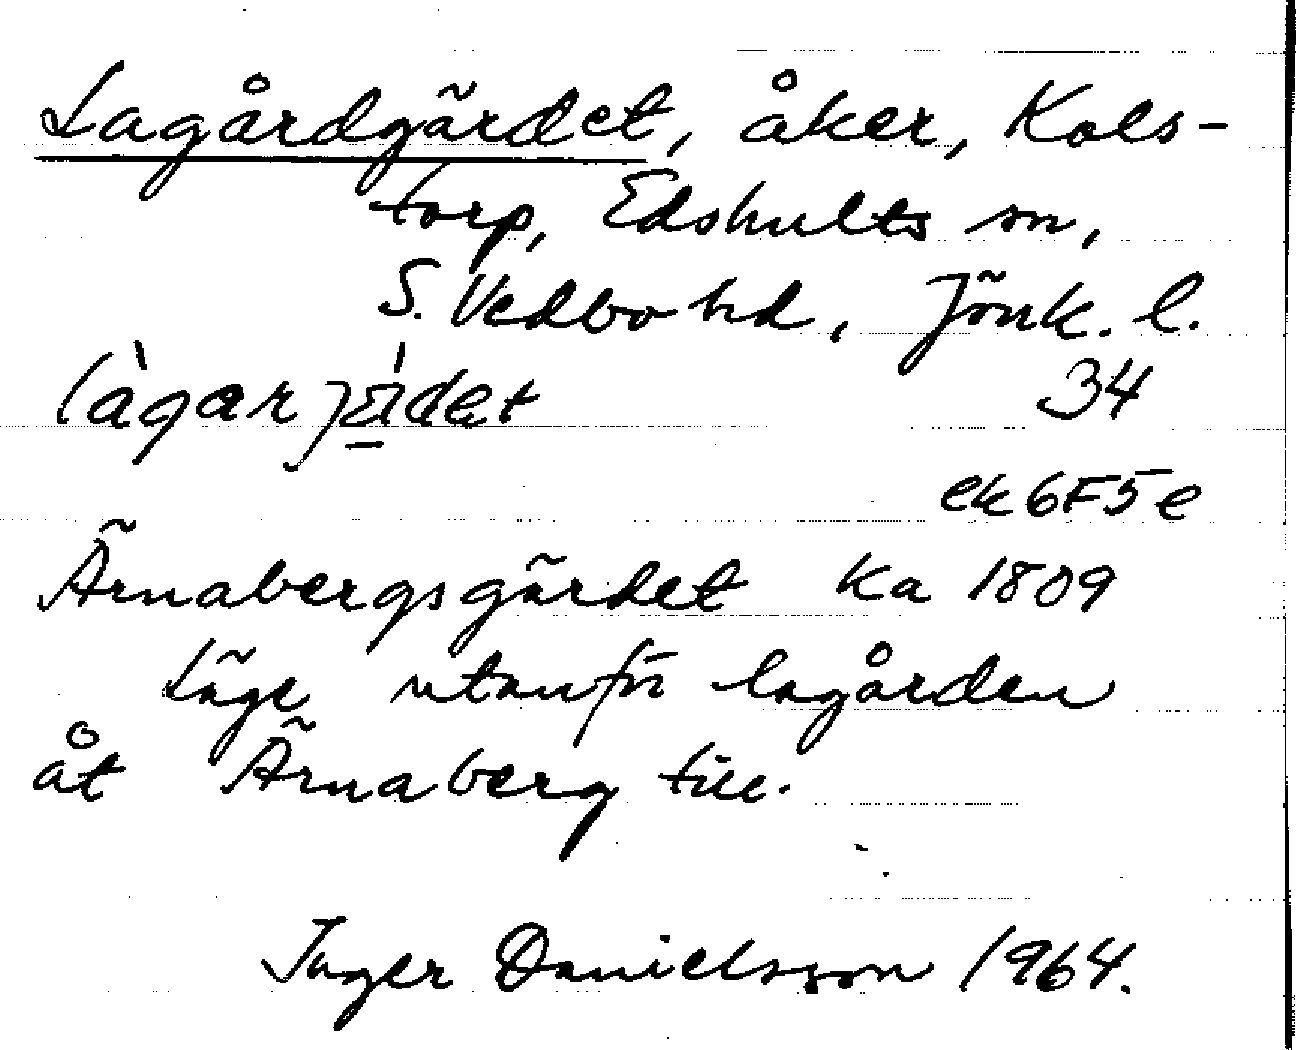 Lagårdgärdet, åker, Kols-
torp, Edshults sn,
S. Vedbo hd, Jönk. l.
34
ek 6F5e
Ärnabergsgärdet ka 1809
Läge utanför lagården
åt Ärnaberg till.
Inger Danielsson 1964.